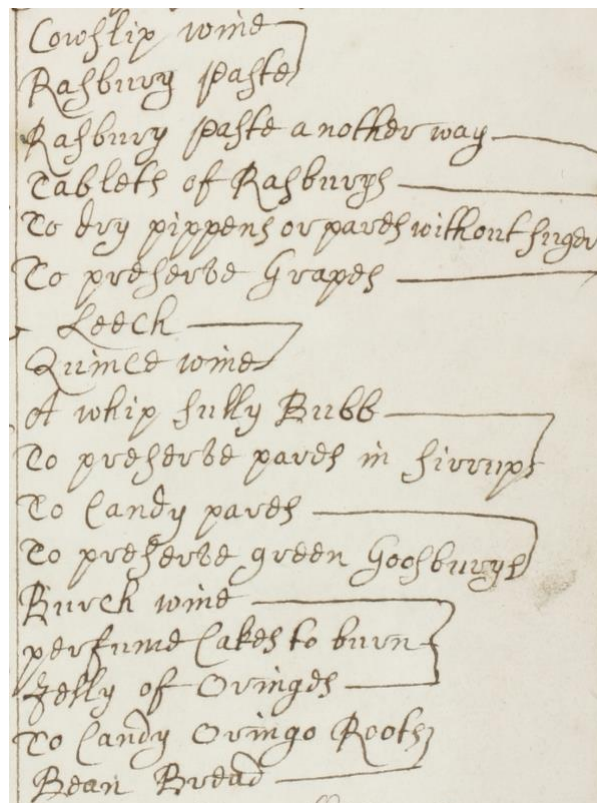 Cowslip wine
Rasbury paste
Rasbury paste another way
Tablets of Rasburys
To dry pippens or pares without suger
To preserve Grapes
Leech
Quince wine
A whip sully Bubb
To preserve pares in sirrups
To Candy pares
To preserve green Goosburys
Burch wine
perfume Cakes to burn
Jelly of Oringes
To Candy Oringo Roots
Bean Bread